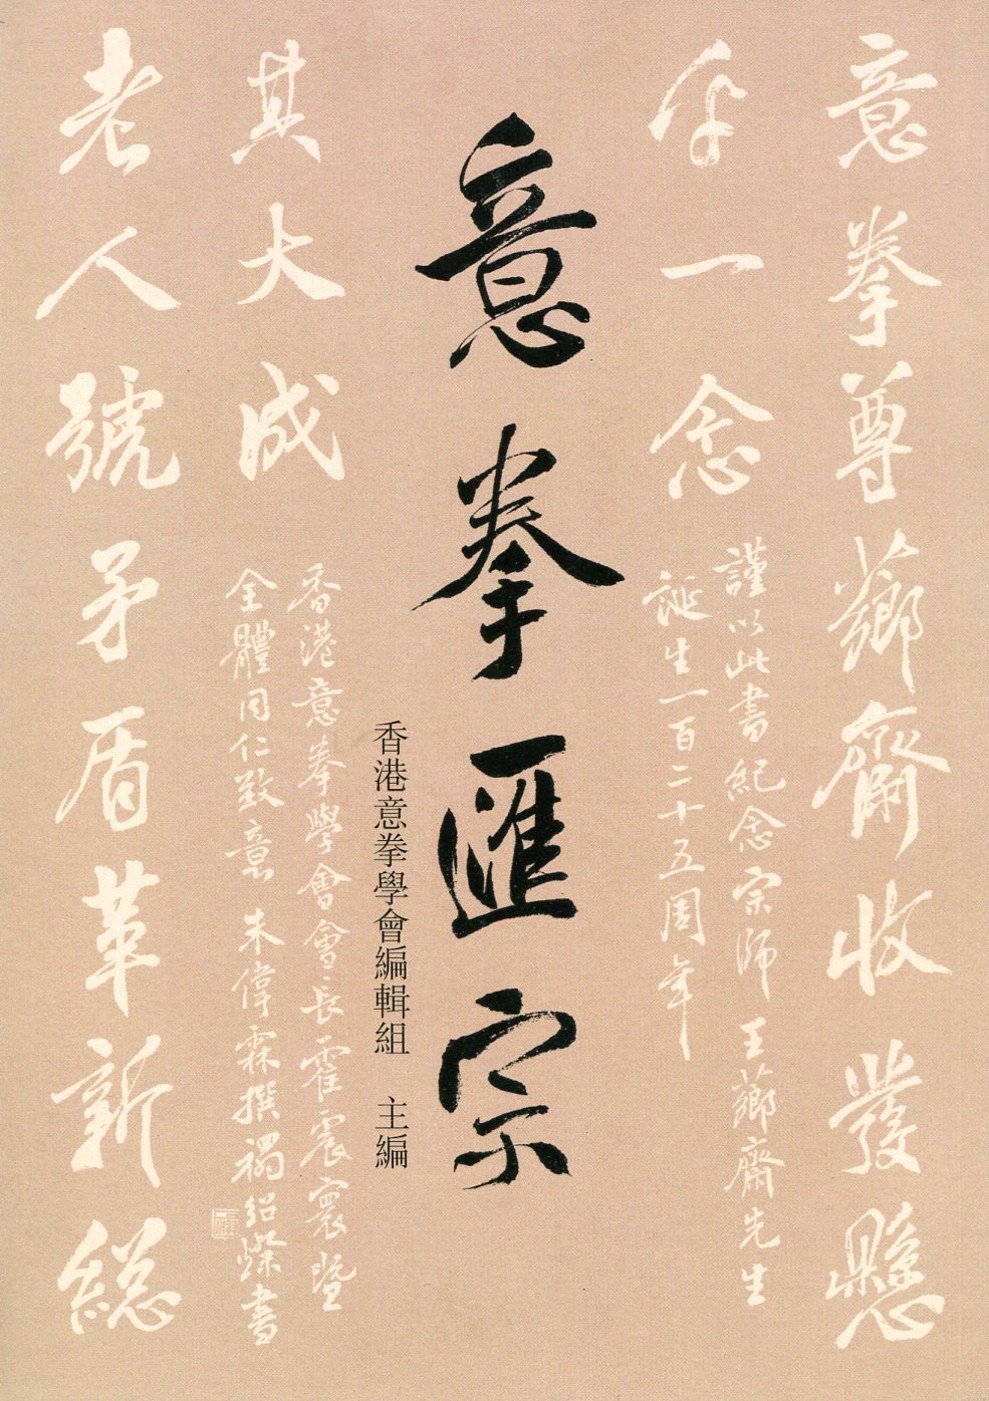 意拳尊薌齋收發懸
乎一念
謹以此書紀念宗師 王薌齋先生
誕生一百二十五周年
意拳匯宗
香港意拳學會編輯組 主編
老人號矛盾革新総
其大成
香港意拳學會會長霍震寰暨
全體同仁致意 朱偉霖撰禤紹燦書